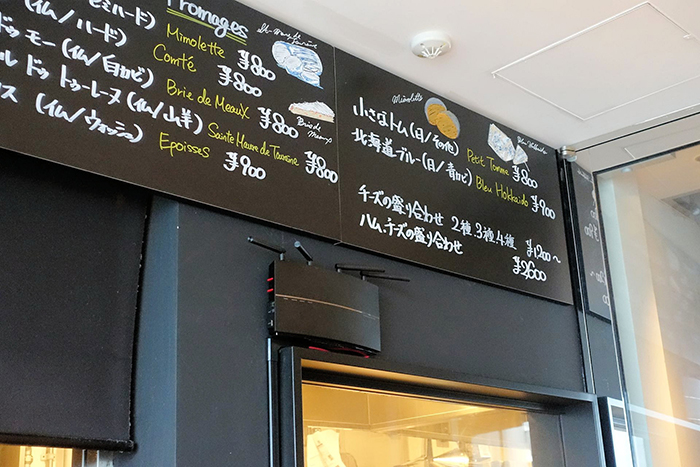 Fromages
ミモハード)
(仏/ハード)
Mimolette ¥800
ドゥ モー (仏/白カビ)
Comté ¥800
ル ドゥ トゥーレーヌ (仏/山羊)
Brie de Meaux ¥800
ス (仏/ウォッシュ)
Sainte Maure de Touraine ¥800
Epoisses ¥900
Brie de Meaux
Mimolette
小さなトム (日/その他)
Petit Tomme ¥800
北海道ブルー (日/青カビ)
Bleu Hokkaido ¥900
チーズの盛り合わせ 2種.3種.4種 ¥1200〜
ハム、チーズの盛り合わせ ¥2600